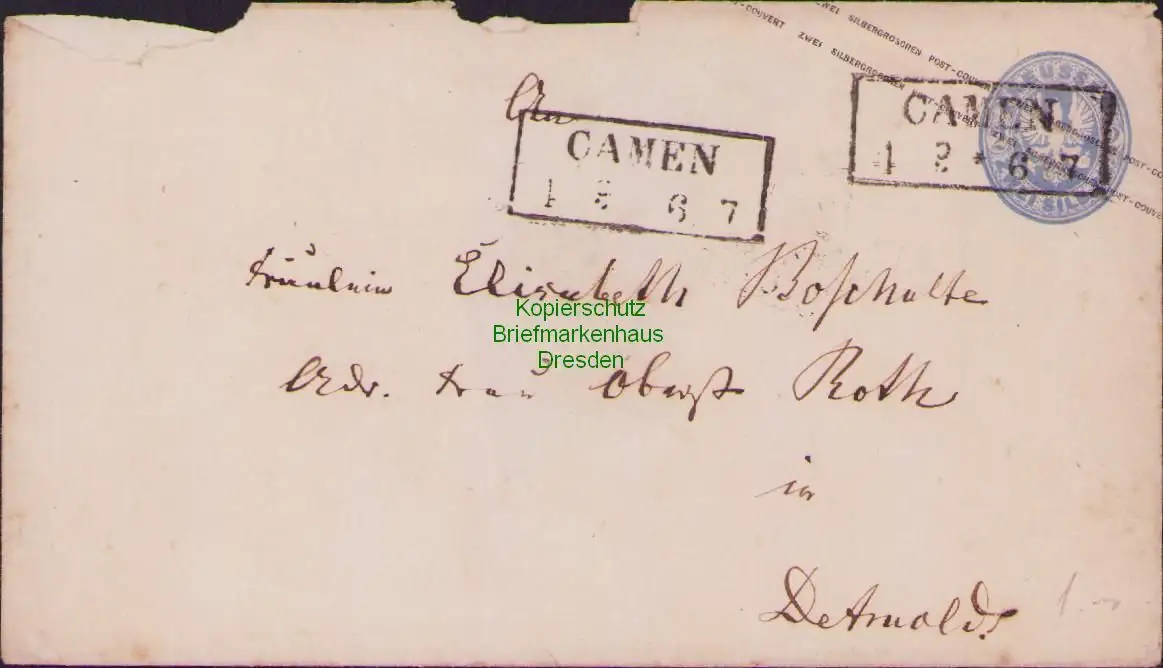 ZWEI SILBERGROSCHEN POST-COUVERT ZWEI SILBERGROSCHEN POST-COUVERT
PREUSSEN
An
CAMEN
4 8 6 7
CAMEN
4 8 * 6 7
Fräulein Elisabeth Boschulte
Adr. Frau Oberst Roth
in
Detmold.
Kopierschutz
Briefmarkenhaus
Dresden